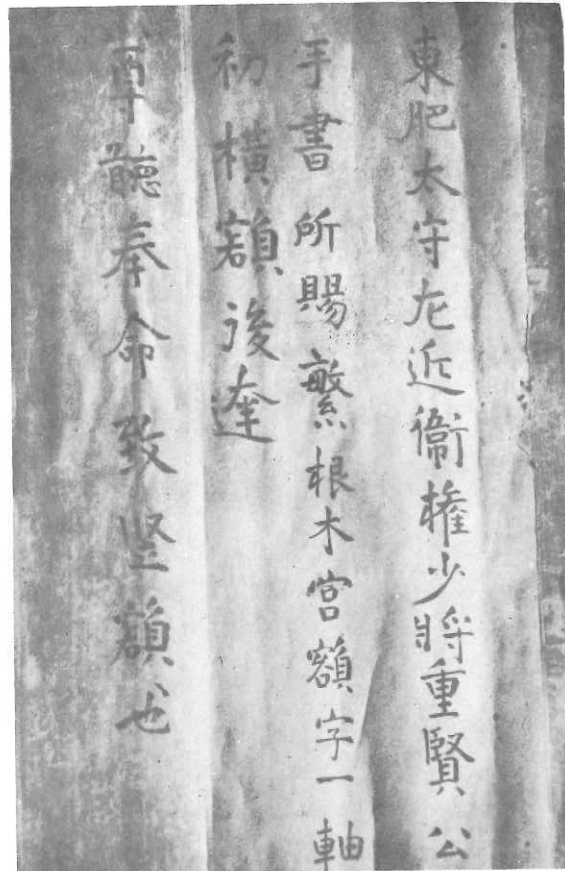 東肥太守左近衞権少将重賢公
手書所賜繁根木宮額字一軸
初横額後達
尊聴奉命致竪額也